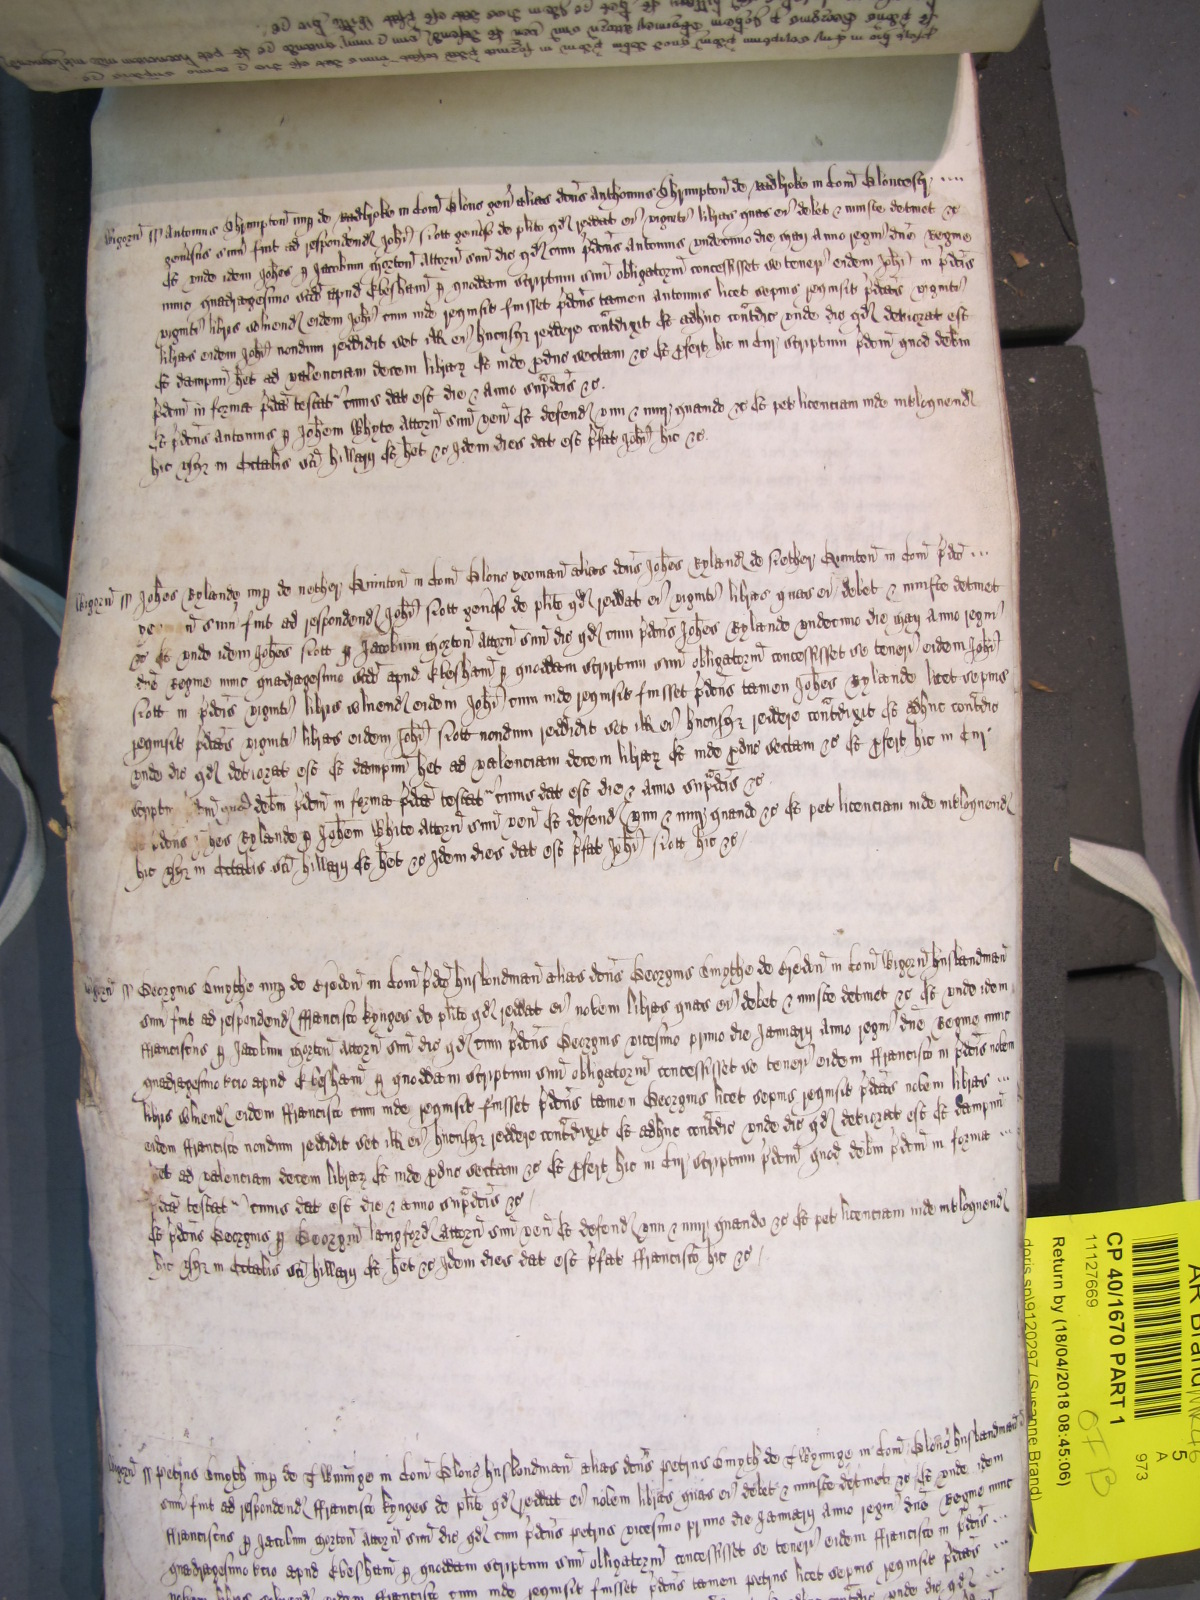 Wigorn̄ ss Antonius Shrimpton nup de in Com̄ Glouc gen̄ alias dc̄us Anthonius Shrimpton de in Com̄ Gloucestr̄ ....
gen̄osus sum̄ fuit ad respondend Joh̄i Scott gen̄oso de pl̄ito qd reddat ei viginti libras quas ei debet & iniuste detinet &c
Et unde idem Joh̄es p Jacobum Morton Attorn̄ suū dic qd cum p̄dc̄us Antonius undecimo die May Anno regni dn̄e Regine
nunc quadragesimo sc̄do apud Evesham p quoddam scriptum suū obligatoriū concessisset se teneri eidem Joh̄i in p̄dc̄is
viginti libris solvend eidem Joh̄i cum inde requisit fuisset p̄dc̄us tamen Antonius licet sepius requisit p̄dc̄as viginti
libras eidem Joh̄i nondum reddidit set ill ei hucusq reddere contradixit Et adhuc contradic unde dic qd deteriorat est
Et dampnū h̄et ad valenciam decem librar̄ Et inde produc sectam &c Et profert hic in Cur̄ scriptum p̄dcm̄ quod debm̄
p̄dcm̄ in forma p̄dc̄a testat̄ cuius dat est die & anno sup̄dc̄is &c.
Et p̄dc̄us Antonius p Joh̄em Whyte Attorn̄ suū ven̄ Et defend vim & iniur̄ quando &c Et pet licenciam inde int̄loquend
hic usq in Octabis sc̄i Hillarij Et h̄et &c Idem dies dat est p̄fat Joh̄i hic &c.
Wigorn̄ ss Joh̄es Rylande nup de nether Quinton̄ in Com̄ Glouc yeoman alias dc̄us Joh̄es Ryland de Nether Quinton̄ in Com̄ p̄dc̄o ...
ye n̄ sum̄ fuit ad respondend Joh̄i Scott gen̄oso de pl̄ito qd reddat ei viginti libras quas ei debet & iniuste detinet
&c Et unde idem Joh̄es Scott p Jacobum Morton Attorn̄ suū dic qd cum p̄dc̄us Joh̄es Rylande undecimo die May Anno regni
dn̄e Regine nunc quadragesimo sc̄do apud Evesham p quoddam scriptum suū obligatoriū concessisset se teneri eidem Joh̄i
Scott in p̄dc̄is viginti libris solvend eidem Joh̄i cum inde requisit fuisset p̄dc̄us tamen Joh̄es Rylande licet sepius
requisit p̄dc̄as viginti libras eidem Joh̄i Scott nondum reddidit set ill ei hucusq reddere contradixit Et adhuc contradic
unde dic qd deteriorat est Et dampnū h̄et ad valenciam decem librar̄ Et inde produc sectam &c Et profert hic in Cur̄
scriptu dcm̄ quod debm̄ p̄dcm̄ in forma p̄dc̄a testat̄ cuius dat est die & anno sup̄dc̄is &c
dc̄us hes Rylande p Joh̄em White Attorn̄ suū ven̄ Et defend vim & iniur̄ quando &c Et pet licenciam inde int̄loquend
hic usq in Octabis sc̄i Hillarij Et h̄et &c Idem dies dat est p̄fat Joh̄i Scott hic &c
Wigorn̄ ss Georgius Smythe nup de in Com̄ p̄dc̄o husbondman alias dc̄us Georgius Smythe de in Com̄ Wigorn̄ husbandman
sum̄ fuit ad respondend Francisco Kynges de pl̄ito qd reddat ei novem libras quas ei debet & iniuste detinet &c Et unde idem
Franciscus p Jacobum Morton Attorn̄ suū dic qd cum p̄dc̄us Georgius vicesimo primo die Januarij Anno regni dn̄e Regine nunc
quadragesimo t̄cio apud Evesham p quoddam scriptum suū obligatoriū concessisset se teneri eidem Francisco in p̄dc̄is novem
libris solvend eidem Francisco cum inde requisit fuisset p̄dc̄us tamen Georgius licet sepius requisit p̄dc̄as novem libras ...
eidem Francisco nondum reddidit set ill ei hucusq reddere contradixit Et adhuc contradic unde dic qd deteriorat est Et dampnū
et ad valenciam decem librar̄ Et inde produc sectam &c Et profert hic in Cur̄ scriptum p̄dcm̄ quod debm̄ p̄dcm̄ in forma ...
dc̄a testat̄ cuius dat est die & anno sup̄dc̄is &c
Et p̄dc̄us Georgius p Georgiū Langford Attorn̄ suū ven̄ Et defend vim & iniur̄ quando &c Et pet licenciam inde int̄loquend
hic usq in Octabis sc̄i Hillarij Et h̄et &c Idem dies dat est p̄fat Francisco hic &c
Wigorn̄ ss Petrus Smyth nup de in Com̄ Glouc husbondman alias dc̄us Petrus Smyth de in Com̄ Glouc husbandman
sum̄ fuit ad respondend Francisco Kynges de pl̄ito qd reddat ei novem libras quas ei debet & iniuste detinet &c Et unde idem
Franciscus p Jacobum Morton Attorn̄ suū dic qd cum p̄dc̄us Petrus vicesimo primo die Januarij Anno regni dn̄e Regine nunc
quadragesimo t̄cio apud Evesham p quoddam scriptum suū obligatoriū concessisset se teneri eidem Francisco in p̄dc̄is ...
novem libris solvend eidem Francisco cum inde requisit fuisset p̄dc̄us tamen Petrus licet sepius requisit p̄dc̄as ...
AR Brand
5
A
973
CP 40/1670 PART 1
11127669
Return by (18/04/2018 08:45:06)
(Susanne Brand)